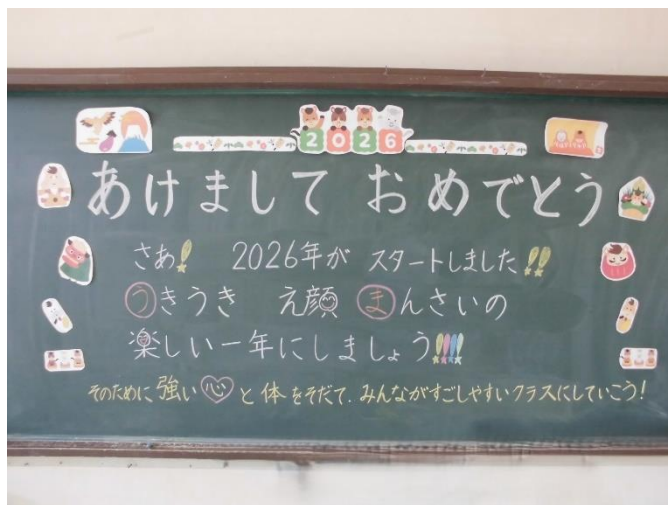 2026
あけまして おめでとう
さあ! 2026年が スタートしました!!
うきうき え顔 まんさいの
楽しい一年にしましょう!!!!
そのために 強い 心 と 体 をそだて、みんながすごしやすいクラスにしていこう!